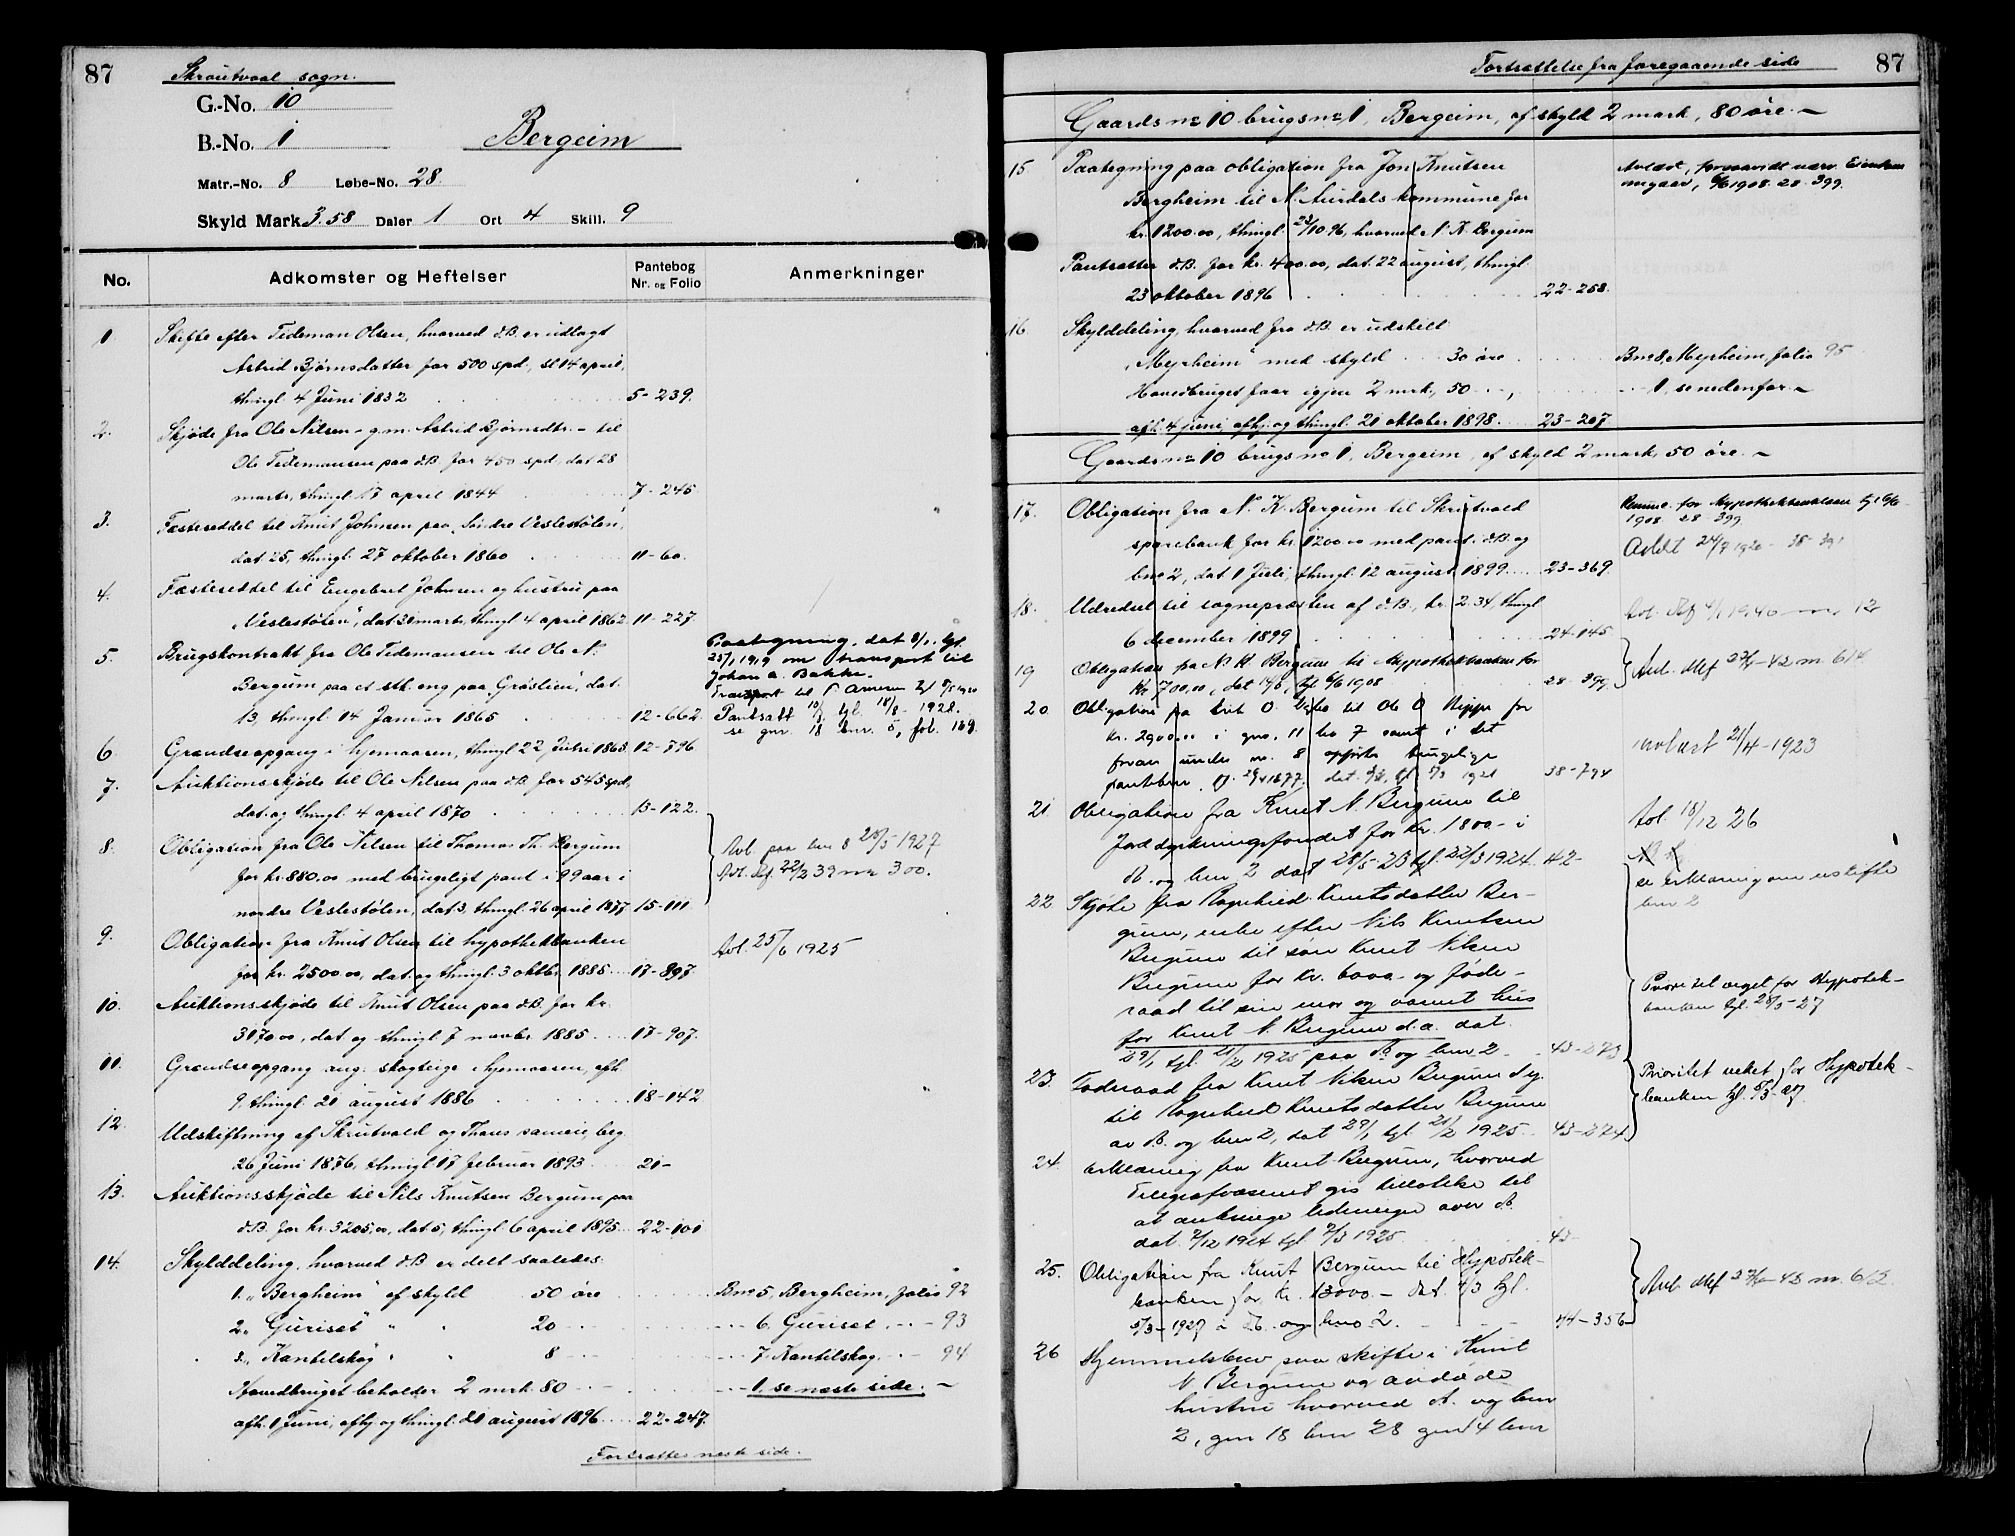 87
Skrautvaal sogn.
G.-No. 10
B.-No. 1
Bergeim
Matr.-No. 8 Løbe-No. 28
Skyld Mark 3.58 Daler 1 Ort 4 Skill. 9
No. Adkomster og Heftelser Pantebog Nr. og Folio Anmerkninger
1. Skifte efter Tideman Olsen, hvorved d.B. er udlagt
Astrid Bjørnsdatter for 500 spd., sl. 14 april,
thingl. 4 Juni 1832 5-239.
2. Skjøde fra Ole Nilsen - g.m. Astrid Bjørnsdtr. - til
Ole Tidemansen paa d.B. for 450 spd., dat. 28
marts, thingl. 17 april 1844 7-245
3. Fæsteseddel til Knut Johnsen paa "Søndre Veslestølen",
dat. 25, thingl. 27 oktober 1860 11-60.
4. Fæsteseddel til Engebret Johnsen og hustru paa
"Veslestølen", dat. 21 marts, thingl. 4 april 1862 11-227.
5. Brugskontrakt fra Ole Tidemansen til Ole N.
Bergum paa et stk. eng paa "Gråslien", dat.
13 thingl. 14 Januar 1865 12-662.
Paategning, dat 8/1, tgl.
25/1 1919 om transport til
Johan A. Bakke.
Pantsatt 10/8 tgl. 18/8 - 1928.
se gnr. 18 bnr. 5, fol. 169.
6. Grændseopgang i hjemaasen, thingl. 22 Juni 1865. 12-796
7. Auktionsskjøde til Ole Nilsen paa d.B. for 545 spd,
dat. og thingl. 4 april 1870 13-122.
8. Obligation fra Ole Nilsen til Thomas Th. Bergum
for kr. 880.00 med brugeligt pant i 99 aar i
nordre Veslestølen, dat. 3, thingl. 26 april 1877 15-111
Avl. paa bnr 8 28/5 1927
Avl. df. 22/2 39 nr 300.
9. Obligation fra Knut Olsen til hypothekbanken
for kr. 2500.00, dat. og thingl. 3 oktbr. 1885 17-897.
Avl. 25/6 1925
10. Auktionsskjøde til Knut Olsen paa d.B. for kr.
3070.00, dat. og thingl. 7 novbr. 1885 17-907.
11. Grændseopgang ang. skogteige i hjemaasen, afh.
9. thingl. 21 august 1886 18-142
12. Udskiftning af Skrutvold og Thons sameie, beg.
26 Juni 1876, thingl. 17 februar 1893 21-
13. Auktionsskjøde til Nils Knutsen Bergum paa
d.B. for kr. 3205.00, dat. 5, thingl. 6 april 1895 22-101
14. Skylddeling, hvorved d.B. er delt saaledes:
1. "Bergheim" af skyld 50 øre Bno 5, Bergheim, folio 92
2. "Guriset" " " 20 - - 6. Guriset - - 93
3. "Kantilskog" " " 8 - - 7. Kantilskog - - 94
Hovedbruget beholder 2 mrk. 80 - - 1. se næste side. -
afh. 1 Juni, afhj. og thingl. 21 august 1896 22-247.
Fortsættes næste side.
Fortsættelse fra foregaaende side 87
Gaards no 10 brugs no 1, Bergeim, af skyld 2 mark, 80 øre. -
15 Paategning paa obligation fra Jon Knutsen
Bergheim til N. Aurdals kommune for
kr. 1200.00, thingl. 23/10 96, hvorved N. K. Bergum
Pantsætter d.B. for kr. 400.00, dat. 22 august, thingl.
23 oktober 1896 22-258.
Avlæst, forsaavidt nærv. Eiendom
angaar, 6/6 1908. 28. 399.
16 Skylddeling, hvorved fra d.B. er udskilt
"Meyrheim" med skyld 30 øre Bno 8, Meyrheim, folio 95
Hovedbruget faar igjen 2 mrk., 50 - - 1, se nedenfor. -
afh. 4 juni, afhj. og thingl. 21 oktober 1898. 23-207
Gaards no 10 brugs no 1, Bergeim, af skyld 2 mark, 50 øre. -
17. Obligation fra N. K. Bergum til Skrutvold
sparebank for kr. 1200.00 med pant i d.B. og
bno 2, dat. 1 Juli, thingl. 12 august 1899 23-369.
for Hypothekbanklaan tgl 6/6
1908 28 399
Avlæst 24/9 1920 - 38 391
18. Udredsel til sognepræsten af d.B., kr. 2.34, thingl.
6 december 1899 24-145
19 Obligation fra N. K. Bergum til Hypothekbanken for
Kr 700,00, dat 14/5, tgl 6/6 1908 28-399
20 Obligation fra
kr. 2900.00 i gno. 11 bno 7 samt i det
38-794
Avlæst 21/4-1923
21 Obligation fra Knut N. Bergum til
Jorddyrkningsfondet for Kr. 1800.- i
A. og bnr 2 dat 28/5-23 tgl. 22/3 1924 42-
Avl. 18/12 26
22 Skjøte fra Ragnhild Knutsdatter Ber-
gum, enke efter Nils Knutsen
Bergum til søn Knut Nilsen
Bergum for kr. 6000.- og føde-
raad til sin mor og vaanet hus
for Knut N. Bergum d.a. dat.
29/1 tgl. 21/2 1925 paa A. og bnr 2 43-273
se erklæring om utskifte
bnr 2
Prioritet veget for Hypotek-
banken tgl. 28/5-27
23. Føderaad fra Knut Nilsen Bergum
til Ragnhild Knutsdatter Bergum
av A. og bnr 2, dat 29/1 tgl. 21/2 1925 43-274
Prioritet veket for Hypotek-
banken tgl. 5/3-27
24. Erklæring fra Knut Bergum, hvorved
Telegrafvæsenet gis tillatelse til
at anbringe ledninger over A.
dat. 2/12 1924 tgl. 2/3 1925 43-
25. Obligation fra Knut Bergum til Hypotek-
banken for kr. 13000.- dat. 4/3 tgl.
5/3-1927 i A. og bno 2. 44-356
26 Hjemmelsbrev paa skifte i Knut
N Bergum og avdøde
hustru hvorved A. og bnr
2, gnr 18 bnr 28 gnr 14 bnr